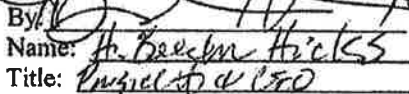 By:
Name: H. Beecher Hicks
Title: President & CEO